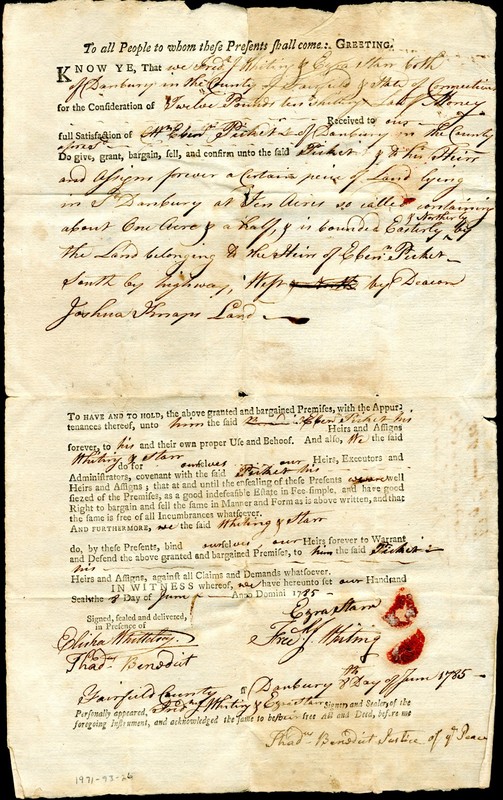 To all People to whom these Presents shall come: GREETING.
KNOW YE, That we Fred.k J. Whiting & Ezra Starr both
of Danbury in the County of Fairfield & State of Connecticut
for the Consideration of Twelve Pounds ten Shillings Lawf. Money
Received to our
full Satisfaction of Eben.r Picket of Danbury in the County
afores.d
Do give, grant, bargain, sell, and confirm unto the said Picket & to his Heirs
and Assigns forever a Certain piece of Land lying
in s.d Danbury at Ten Acres so called containing
about One Acre & a half, & is bounded Easterly & Northerly by
the Land belonging to the Heirs of Eben.r Picket
South by highway, West by Deacon
Joshua Knaps Land
TO HAVE AND TO HOLD, the above granted and bargained Premises, with the Appur-
tenances thereof, unto him the said Eben.r Picket his
Heirs and Assigns
forever, to his and their own proper Use and Behoof. And also, We the said
Whiting & Starr
do for ourselves our Heirs, Executors and
Administrators, covenant with the said Picket his
Heirs and Assigns; that at and until the ensealing of these Presents we were well
seized of the Premises, as a good indefeasible Estate in Fee-simple, and have good
Right to bargain and sell the same in Manner and Form as is above written, and that
the same is free of all Incumbrances whatsoever.
AND FURTHERMORE, we the said Whiting & Starr
do, by these Presents, bind ourselves our Heirs forever to Warrant
and Defend the above granted and bargained Premises, to him the said Picket
his
Heirs and Assigns, against all Claims and Demands whatsoever.
IN WITNESS whereof, we have hereunto set our Hands and
Seals the 8 Day of June Anno Domini 1785
Ezra Starr
Signed, sealed and delivered,
in Presence of
Fred.k J. Whiting
Elisha Whittlesey
Thad.s Benedict
Fairfield County ss Danbury 8th Day of June 1785
Personally appeared, Fred.k J. Whiting & Ezra Starr Signers and Sealers of the
foregoing Instrument, and acknowledged the same to be their free Act and Deed, before me
Thad.s Benedict Justice of y.e Peace
1971-93-26